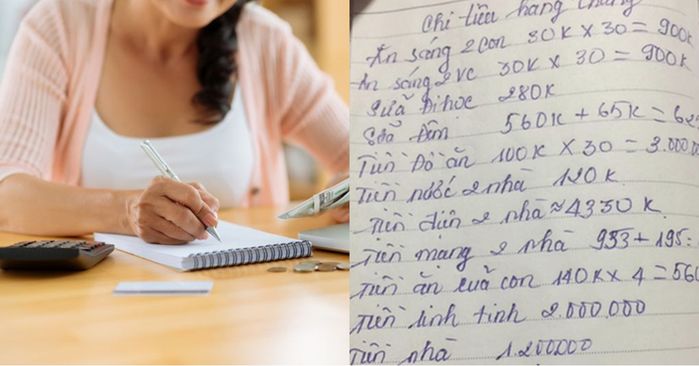 Chi tiêu hàng tháng
Ăn sáng 2 con 30K X 30 = 900K
Ăn sáng 2 VC 30K X 30 = 900K
Sữa Đi học 280K
Sữa Đêm 560K + 65K = 62
Tiền Đồ ăn 100K X 30 = 3.000.0
Tiền nước 2 nhà 120K
Tiền điện 2 nhà ≈ 4350K
Tiền mạng 2 nhà 933 + 195
Tiền ăn của con 140K X 4 = 560
Tiền linh tinh 2.000.000
Tiền nhà 1.200.000